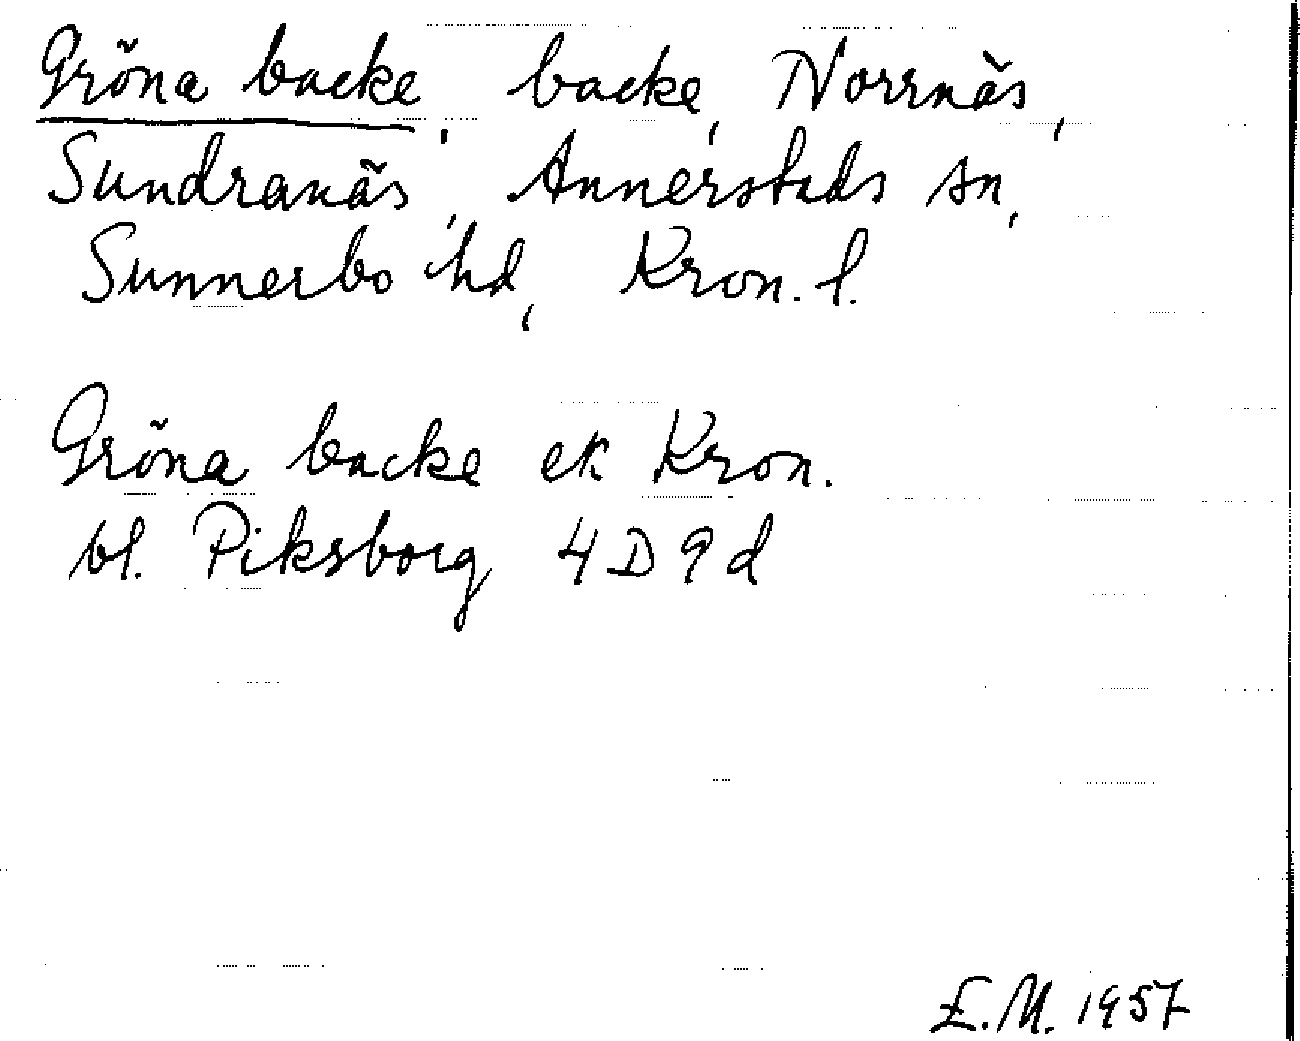 Gröna backe, backe, Norrnäs,
Sundranäs, Annerstads sn,
Sunnerbo hd, Kron. l.
Gröna backe ek Kron.
bl. Piksborg 4D9d
E.M. 1957